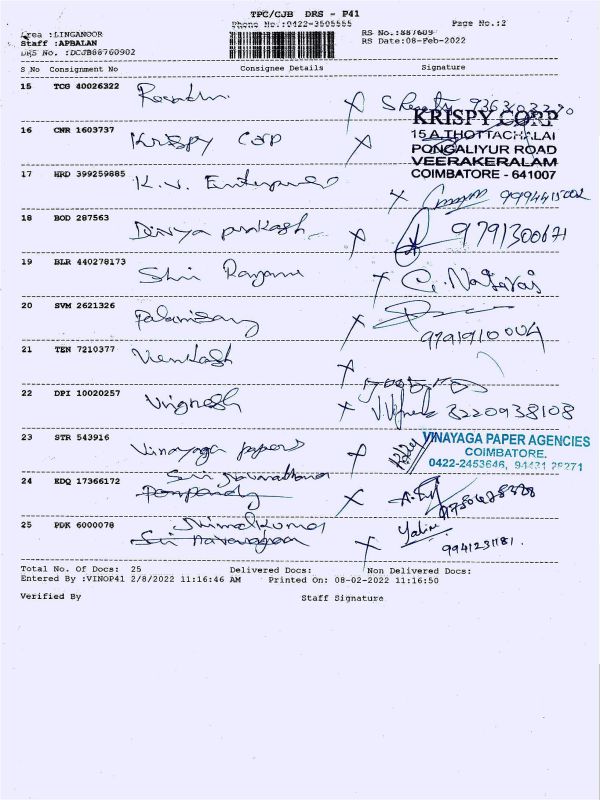 TPC/CJB DRS - P41
Phone No.:0422-3505555 Page No.:2
Area :LINGANOOR RS No.:887609
Staff :APBALAN RS Date:08-Feb-2022
DRS No. :DCJB88760902
S No Consignment No Consignee Details Signature
15 TCG 40026322
KRISPY CORP
16 CNR 1603737 Krispy Corp X 15 A, THOTTACHALAI
PONGALIYUR ROAD
VEERAKERALAM
17 HRD 399259885 K.V. Enterprises X COIMBATORE - 641007
18 BOD 287563 Divya prakash X 9791300671
19 BLR 440278173 Shri Ranjani X G. Nataraj
20 SVM 2621326 Palanisamy X 9791910004
21 TEN 7210377 Venkash X
22 DPI 10020257 Vignesh X 8220938108
23 STR 543916 Vinayaga papers X VINAYAGA PAPER AGENCIES
COIMBATORE.
0422-2453646, 94431 28271
24 EDQ 17366172 Sri X
25 PDK 6000078 Shimalkumar X 9941231181.
Total No. Of Docs: 25 Delivered Docs: Non Delivered Docs:
Entered By :VINOP41 2/8/2022 11:16:46 AM Printed On: 08-02-2022 11:16:50
Verified By Staff Signature